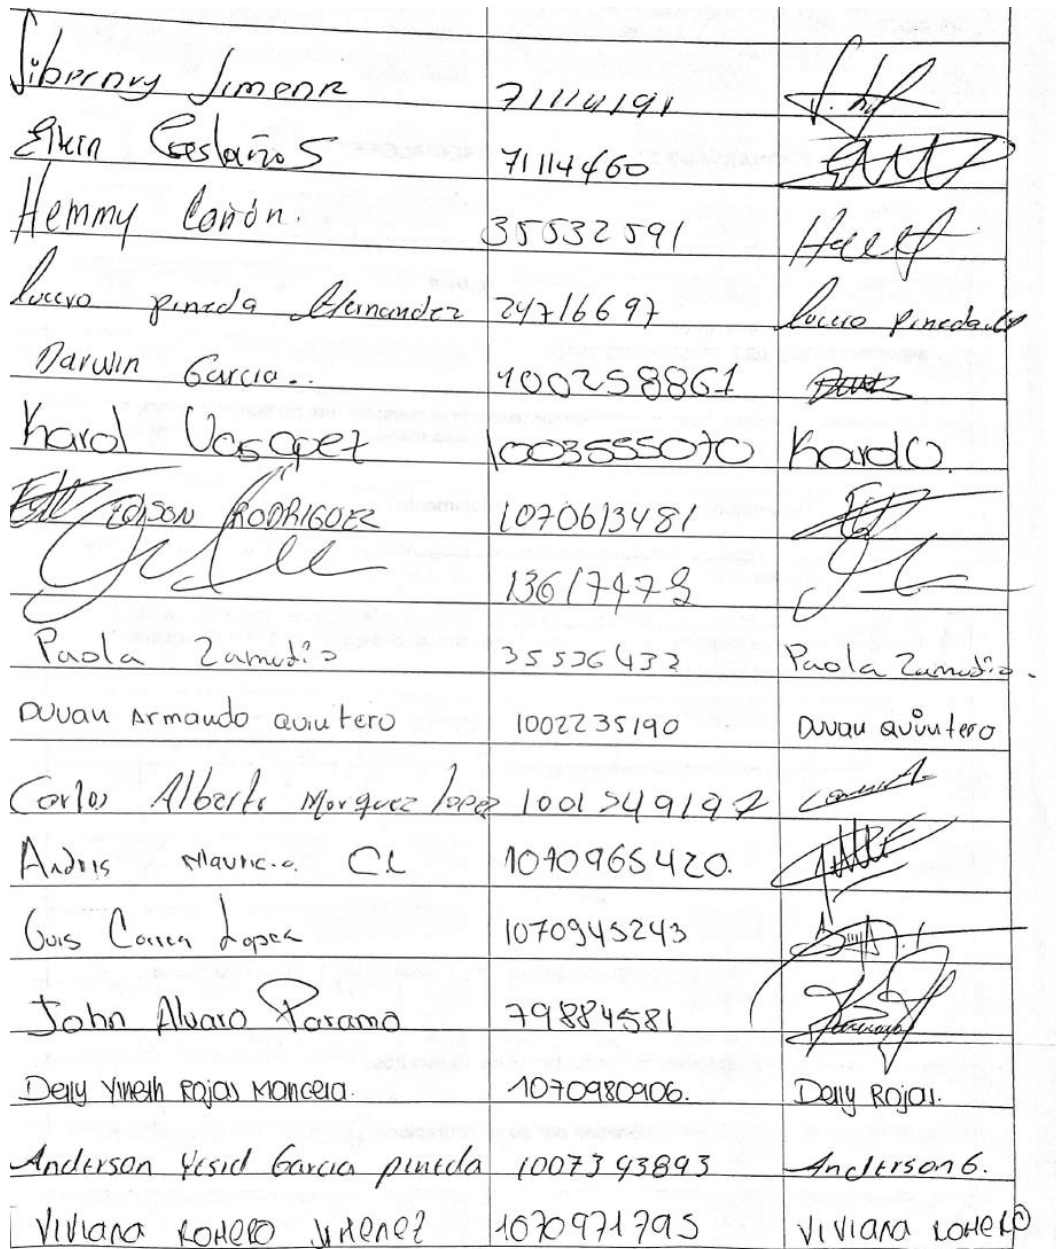 Jimenz 71114191
Castaños 71114460
Hemmy Cañón. 35532591
Lucero pineda Hernandez 24716697 Lucero Pineda
Darwin Garcia.. 1002588861
Karol Vasquez 1003555070 KarolO.
EDISON RODRIGUEZ 1070613481
13617478
Paola Zamudio 35536433 Paola Zamudio.
Duvan Armando Quintero 1002235190 Duvan Quintero
Carlos Alberto Marquez Lopez 1001349197
Mauricio CL 1070965420.
Lopez 1070945243
John Alvaro Paramo 79884581
Delly Yineth Rojas Mancera. 1070980906. Delly Rojas.
Anderson Yesid Garcia pineda 1007393893 Anderson G.
VIVIANA ROMERO JIMENEZ 1070971795 VIVIANA ROMERO